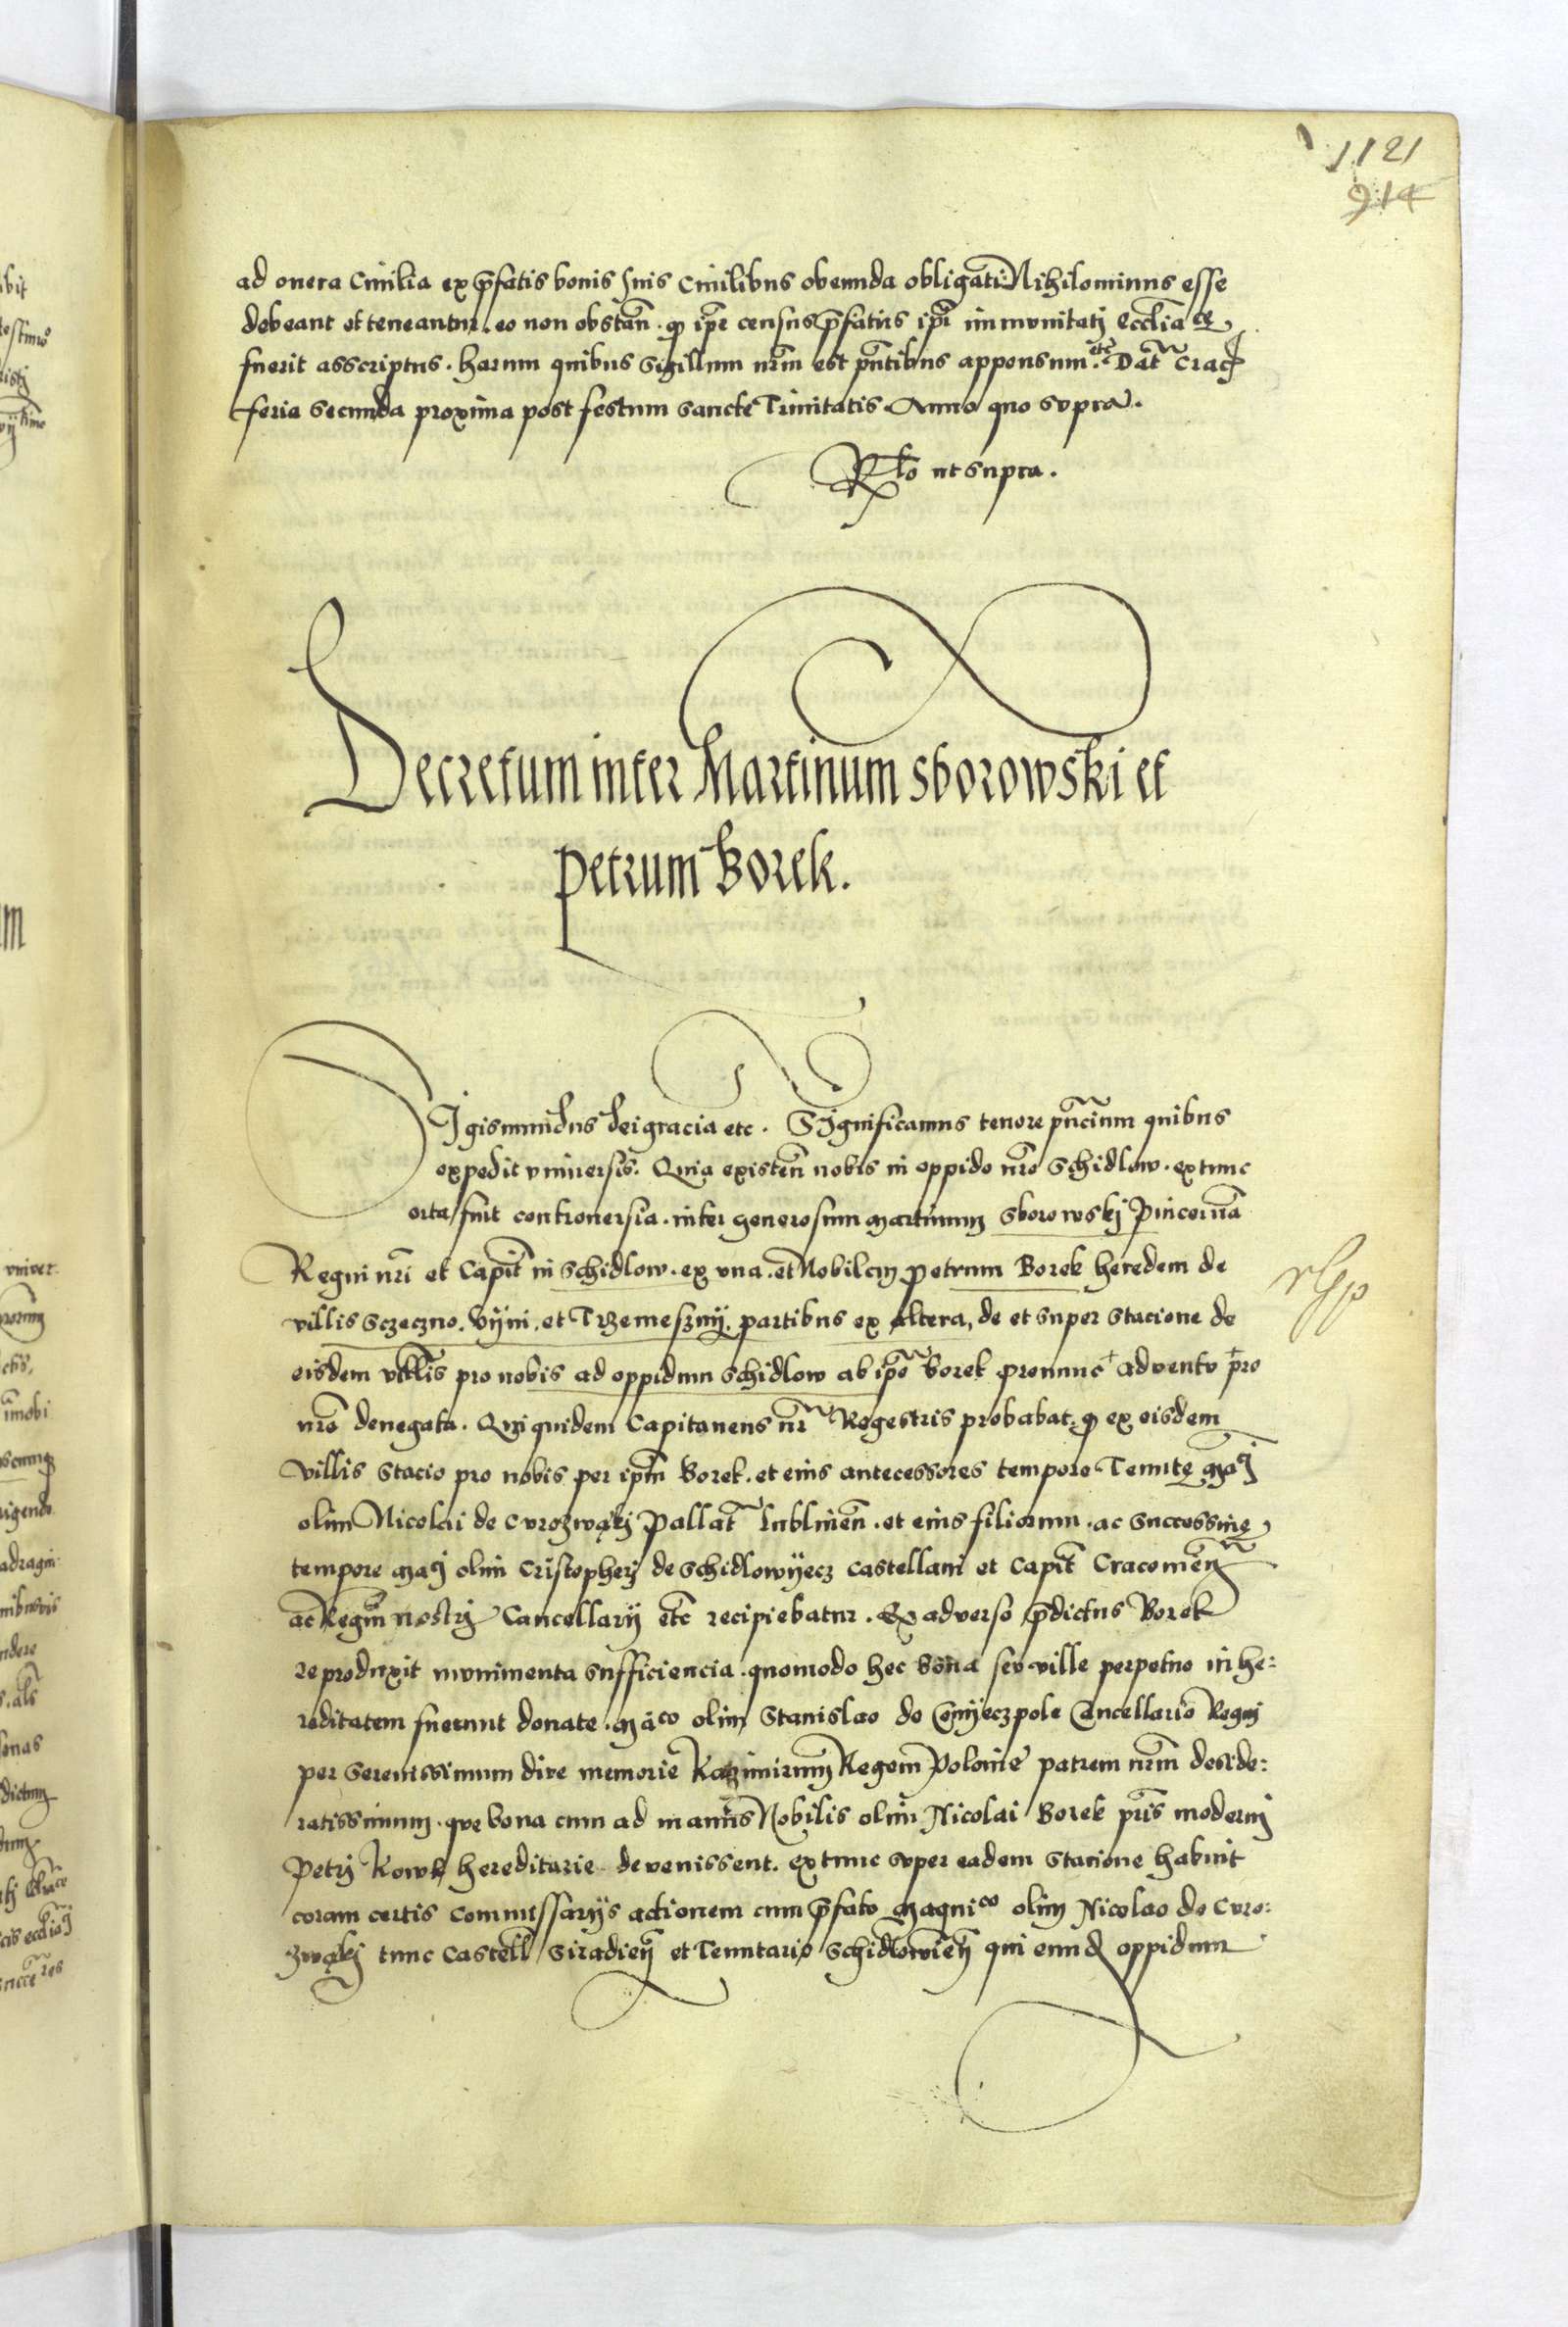 1121
914
ad onera Civilia ex p̄fatis bonis suis Civilibus obeunda obligati. Nihilominus esse
debeant et teneantur. eo non obstan̄. ꝙ ip̄e census p̄fatus ip̄i immunitatj Eccl̄iastice
fuerit asscriptus. harum quibus Sigillum nr̄m est pn̄tibus appensum. etc̄ Dat̄ Crac̄
feria secunda proxima post festum sancte Trinitatis. Anno quo supra.
Rl̄o ut supra.
Decretum inter Martinum Sborowski et
Petrum Borek.
Sigismundus dei gracia etc. Significamus tenore pn̄cium quibus
expedit universis. Quia existen̄ nobis in oppido nr̄o Schidlow. extunc
orta fuit controversia. inter generosum Martinum Sborowskj Pincernā
Regni nr̄i et Capit̄ in Schidlow. ex una. et Nobilem Petrum Borek heredem de
villis Sczeczno. Vyni. et Trzemeszny. partibus ex altera, de et super stacione de
eisdem villis pro nobis ad oppidum Schidlow ab ip̄o Borek pronunc adventu pro
nr̄o denegata. Qui quidem Capitaneus nr̄ Regestris probabat. ꝙ ex eisdem
villis stacio pro nobis per ip̄m Borek. et eius antecessores tempore Tenute Mācj
olim Nicolai de Curozwąkj Pallat̄ Lublinen̄. et eius filiorum. ac successive
tempore Mācj olim Cristopherj de Schidlowyecz Castellani et Capit̄ Cracovien̄
ac Regnj nostrj Cancellarij etc̄ recipiebatur. Ex adverso p̄dictus Borek
reproduxit munimenta sufficiencia. quomodo hec bona seu ville perpetuo in he:
reditatem fuerunt donate. Māco olim Stanislao de Conyeczpole Cancellario Regnj
per Serenissimum dive memorie Kazimirum Regem Polonie patrem nr̄m deside:
ratissimum. que bona cum ad manus Nobilis olim Nicolai Borek pr̄is modernj
Petrj hereditarie devenissent. extunc super eadem stacione habuit
coram certis Commissarijs actionem cum p̄fato Magnico olim Nicolao de Curo:
zwąkj tunc Castell̄ Siradien̄ et Tenutario Schidlowien̄ qui eund̄ oppidum